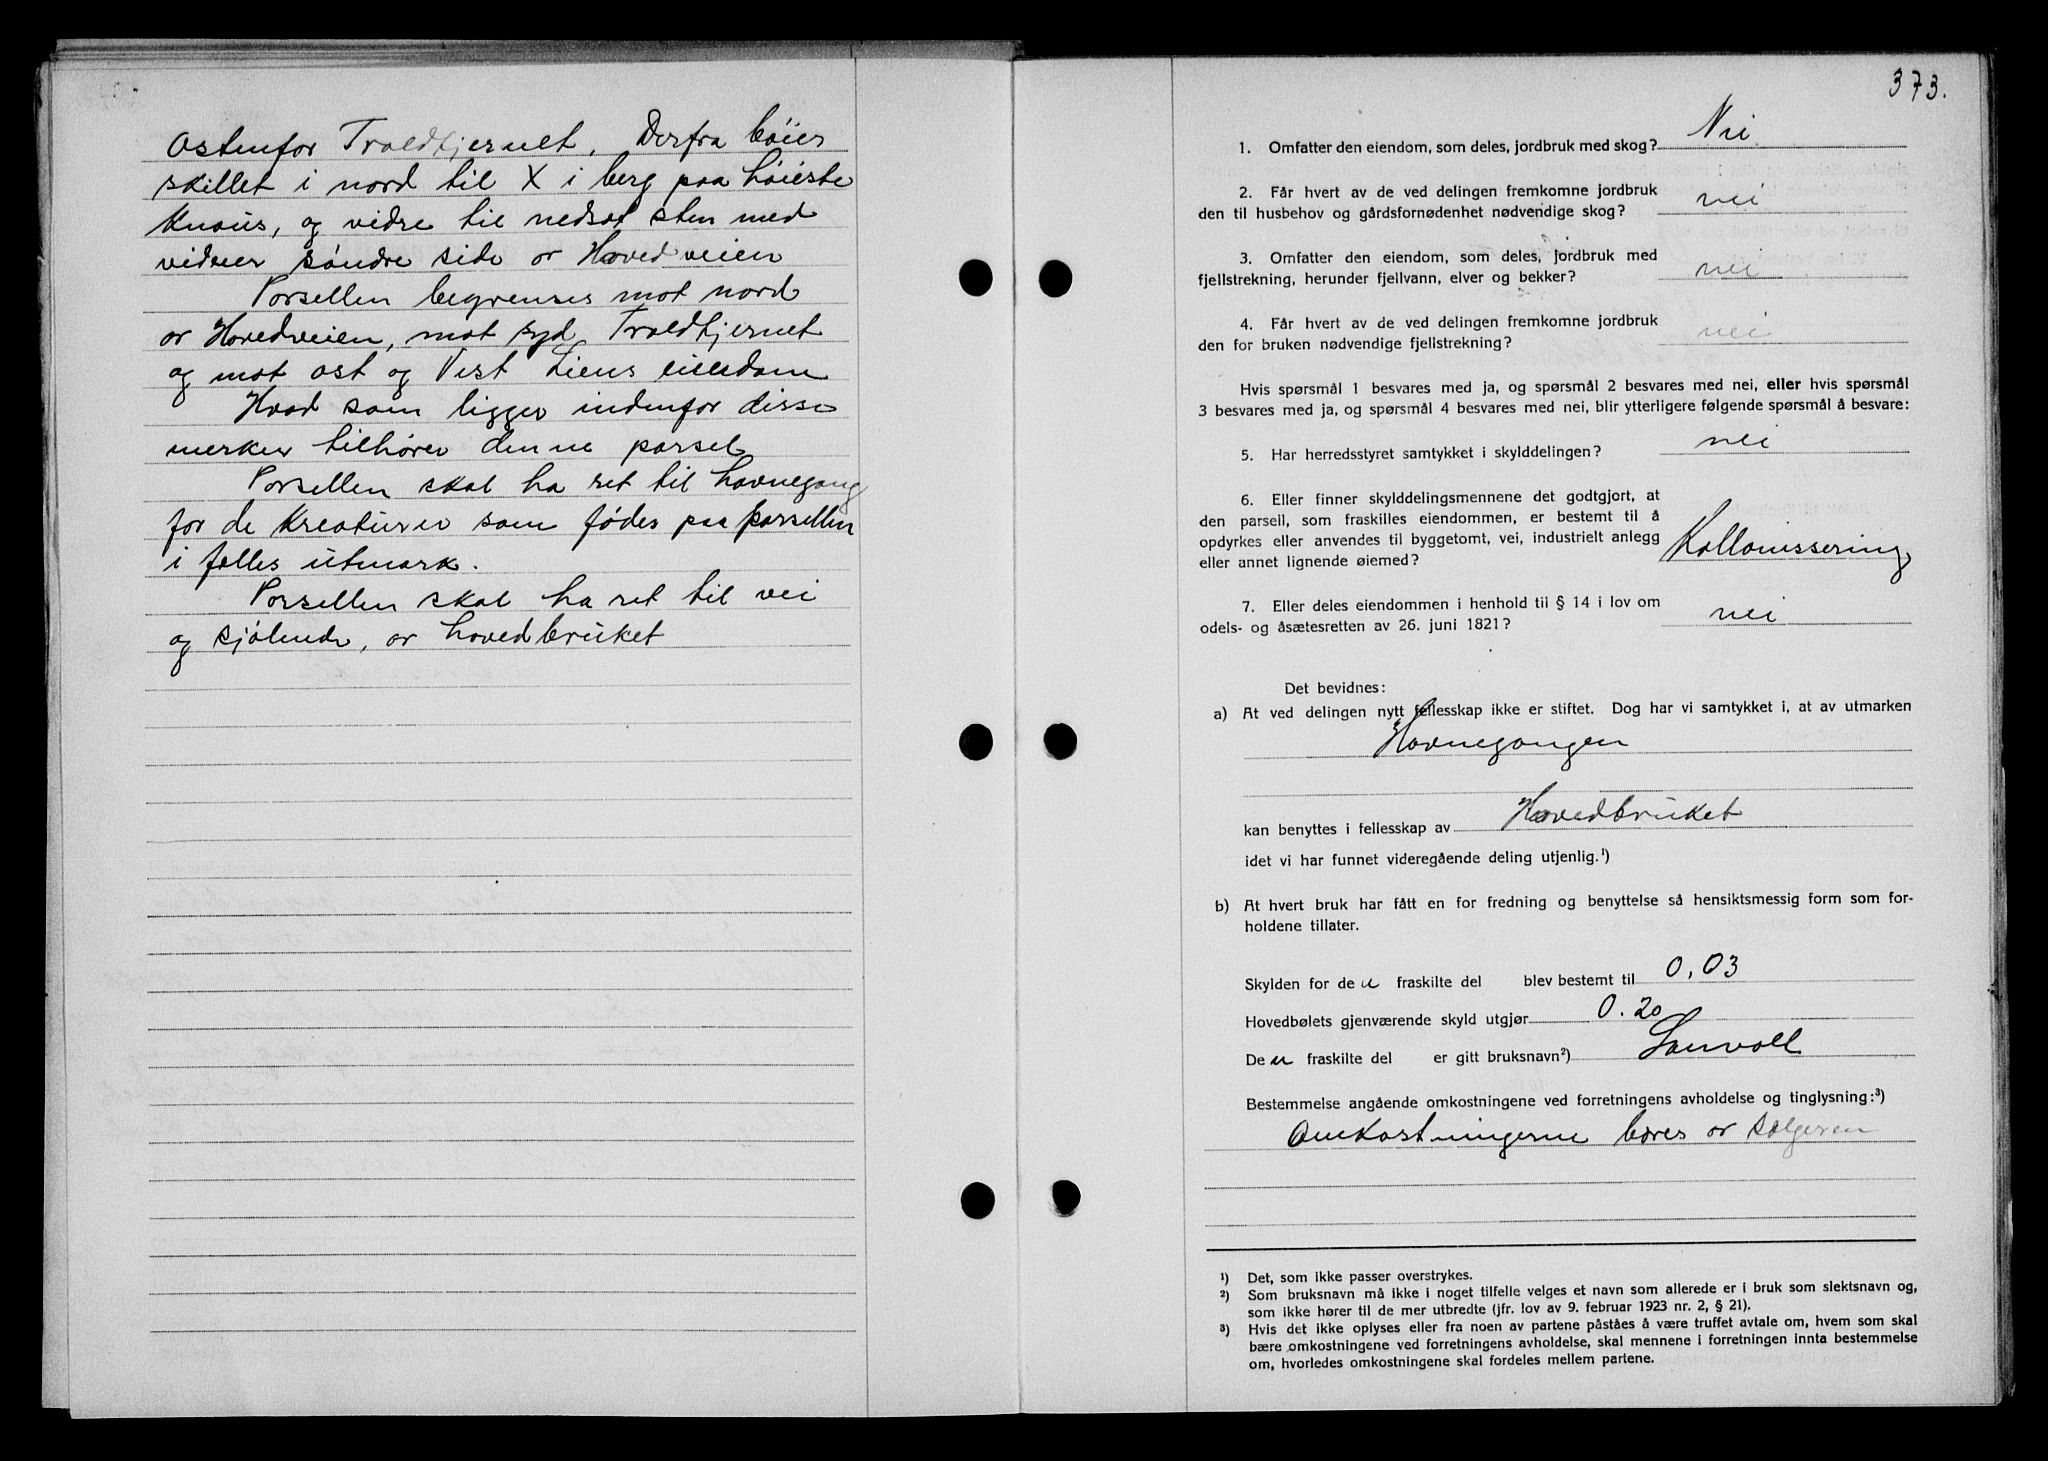 ostenfor Troldtjernet. Derfra bøier
skillet i nord til X i berg paa høieste
Knaus, og vidre til nedsat sten med
vidner søndre side av Hovedveien
Parsellen begrenses mot nord
av Hovedveien, mot syd Troldtjernet
og mot ost og Vest Liens eiendom
Hvad som ligger indenfor disse
merker tilhører denne parsel
Parsellen skal ha ret til havnegang
for de Kreaturer som fødes paa parsellen
i felles utmark.
Parsellen skal ha ret til vei
og sjølende, av hovedbruket
373.
1. Omfatter den eiendom, som deles, jordbruk med skog? Nei
2. Får hvert av de ved delingen fremkomne jordbruk
den til husbehov og gårdsfornødenhet nødvendige skog? nei
3. Omfatter den eiendom, som deles, jordbruk med
fjellstrekning, herunder fjellvann, elver og bekker? nei
4. Får hvert av de ved delingen fremkomne jordbruk
den for bruken nødvendige fjellstrekning? nei
Hvis spørsmål 1 besvares med ja, og spørsmål 2 besvares med nei, eller hvis spørsmål
3 besvares med ja, og spørsmål 4 besvares med nei, blir ytterligere følgende spørsmål å besvare:
5. Har herredsstyret samtykket i skylddelingen? nei
6. Eller finner skylddelingsmennene det godtgjort, at
den parsell, som fraskilles eiendommen, er bestemt til å
opdyrkes eller anvendes til byggetomt, vei, industrielt anlegg
eller annet lignende øiemed? Kollonissering
7. Eller deles eiendommen i henhold til § 14 i lov om
odels- og åsætesretten av 26. juni 1821? nei
Det bevidnes:
a) At ved delingen nytt fellesskap ikke er stiftet. Dog har vi samtykket i, at av utmarken
Havnegangen
kan benyttes i fellesskap av Hovedbruket
idet vi har funnet videregående deling utjenlig.¹)
b) At hvert bruk har fått en for fredning og benyttelse så hensiktsmessig form som for-
holdene tillater.
Skylden for den fraskilte del blev bestemt til 0,03
Hovedbølets gjenværende skyld utgjør 0.20
Den fraskilte del er gitt bruksnavn²) Sanvoll
Bestemmelse angående omkostningene ved forretningens avholdelse og tinglysning:³)
Omkostningerne bæres av sælgeren
¹) Det, som ikke passer overstrykes.
²) Som bruksnavn må ikke i noget tilfelle velges et navn som allerede er i bruk som slektsnavn og,
som ikke hører til de mer utbredte (jfr. lov av 9. februar 1923 nr. 2, § 21).
³) Hvis det ikke oplyses eller fra noen av partene påståes å være truffet avtale om, hvem som skal
bære omkostningene ved forretningens avholdelse, skal mennene i forretningen innta bestemmelse
om, hvorledes omkostningene skal fordeles mellem partene.